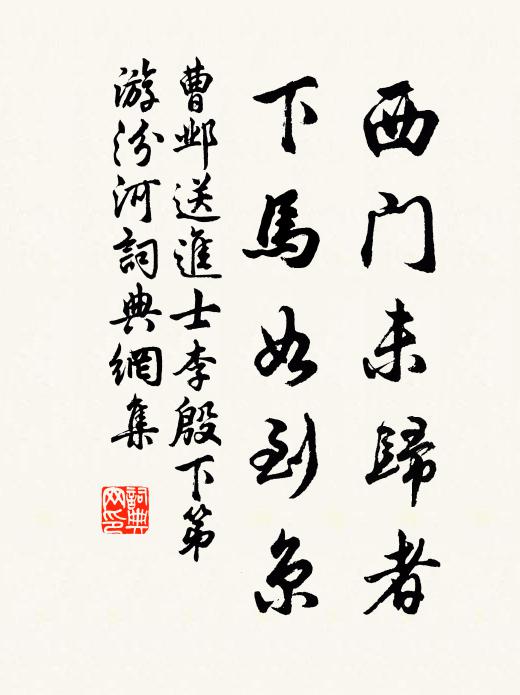 西门未歸者
下馬如到京
曹邺送進士李殷下第
游汾河詞典網集
詞典
网印